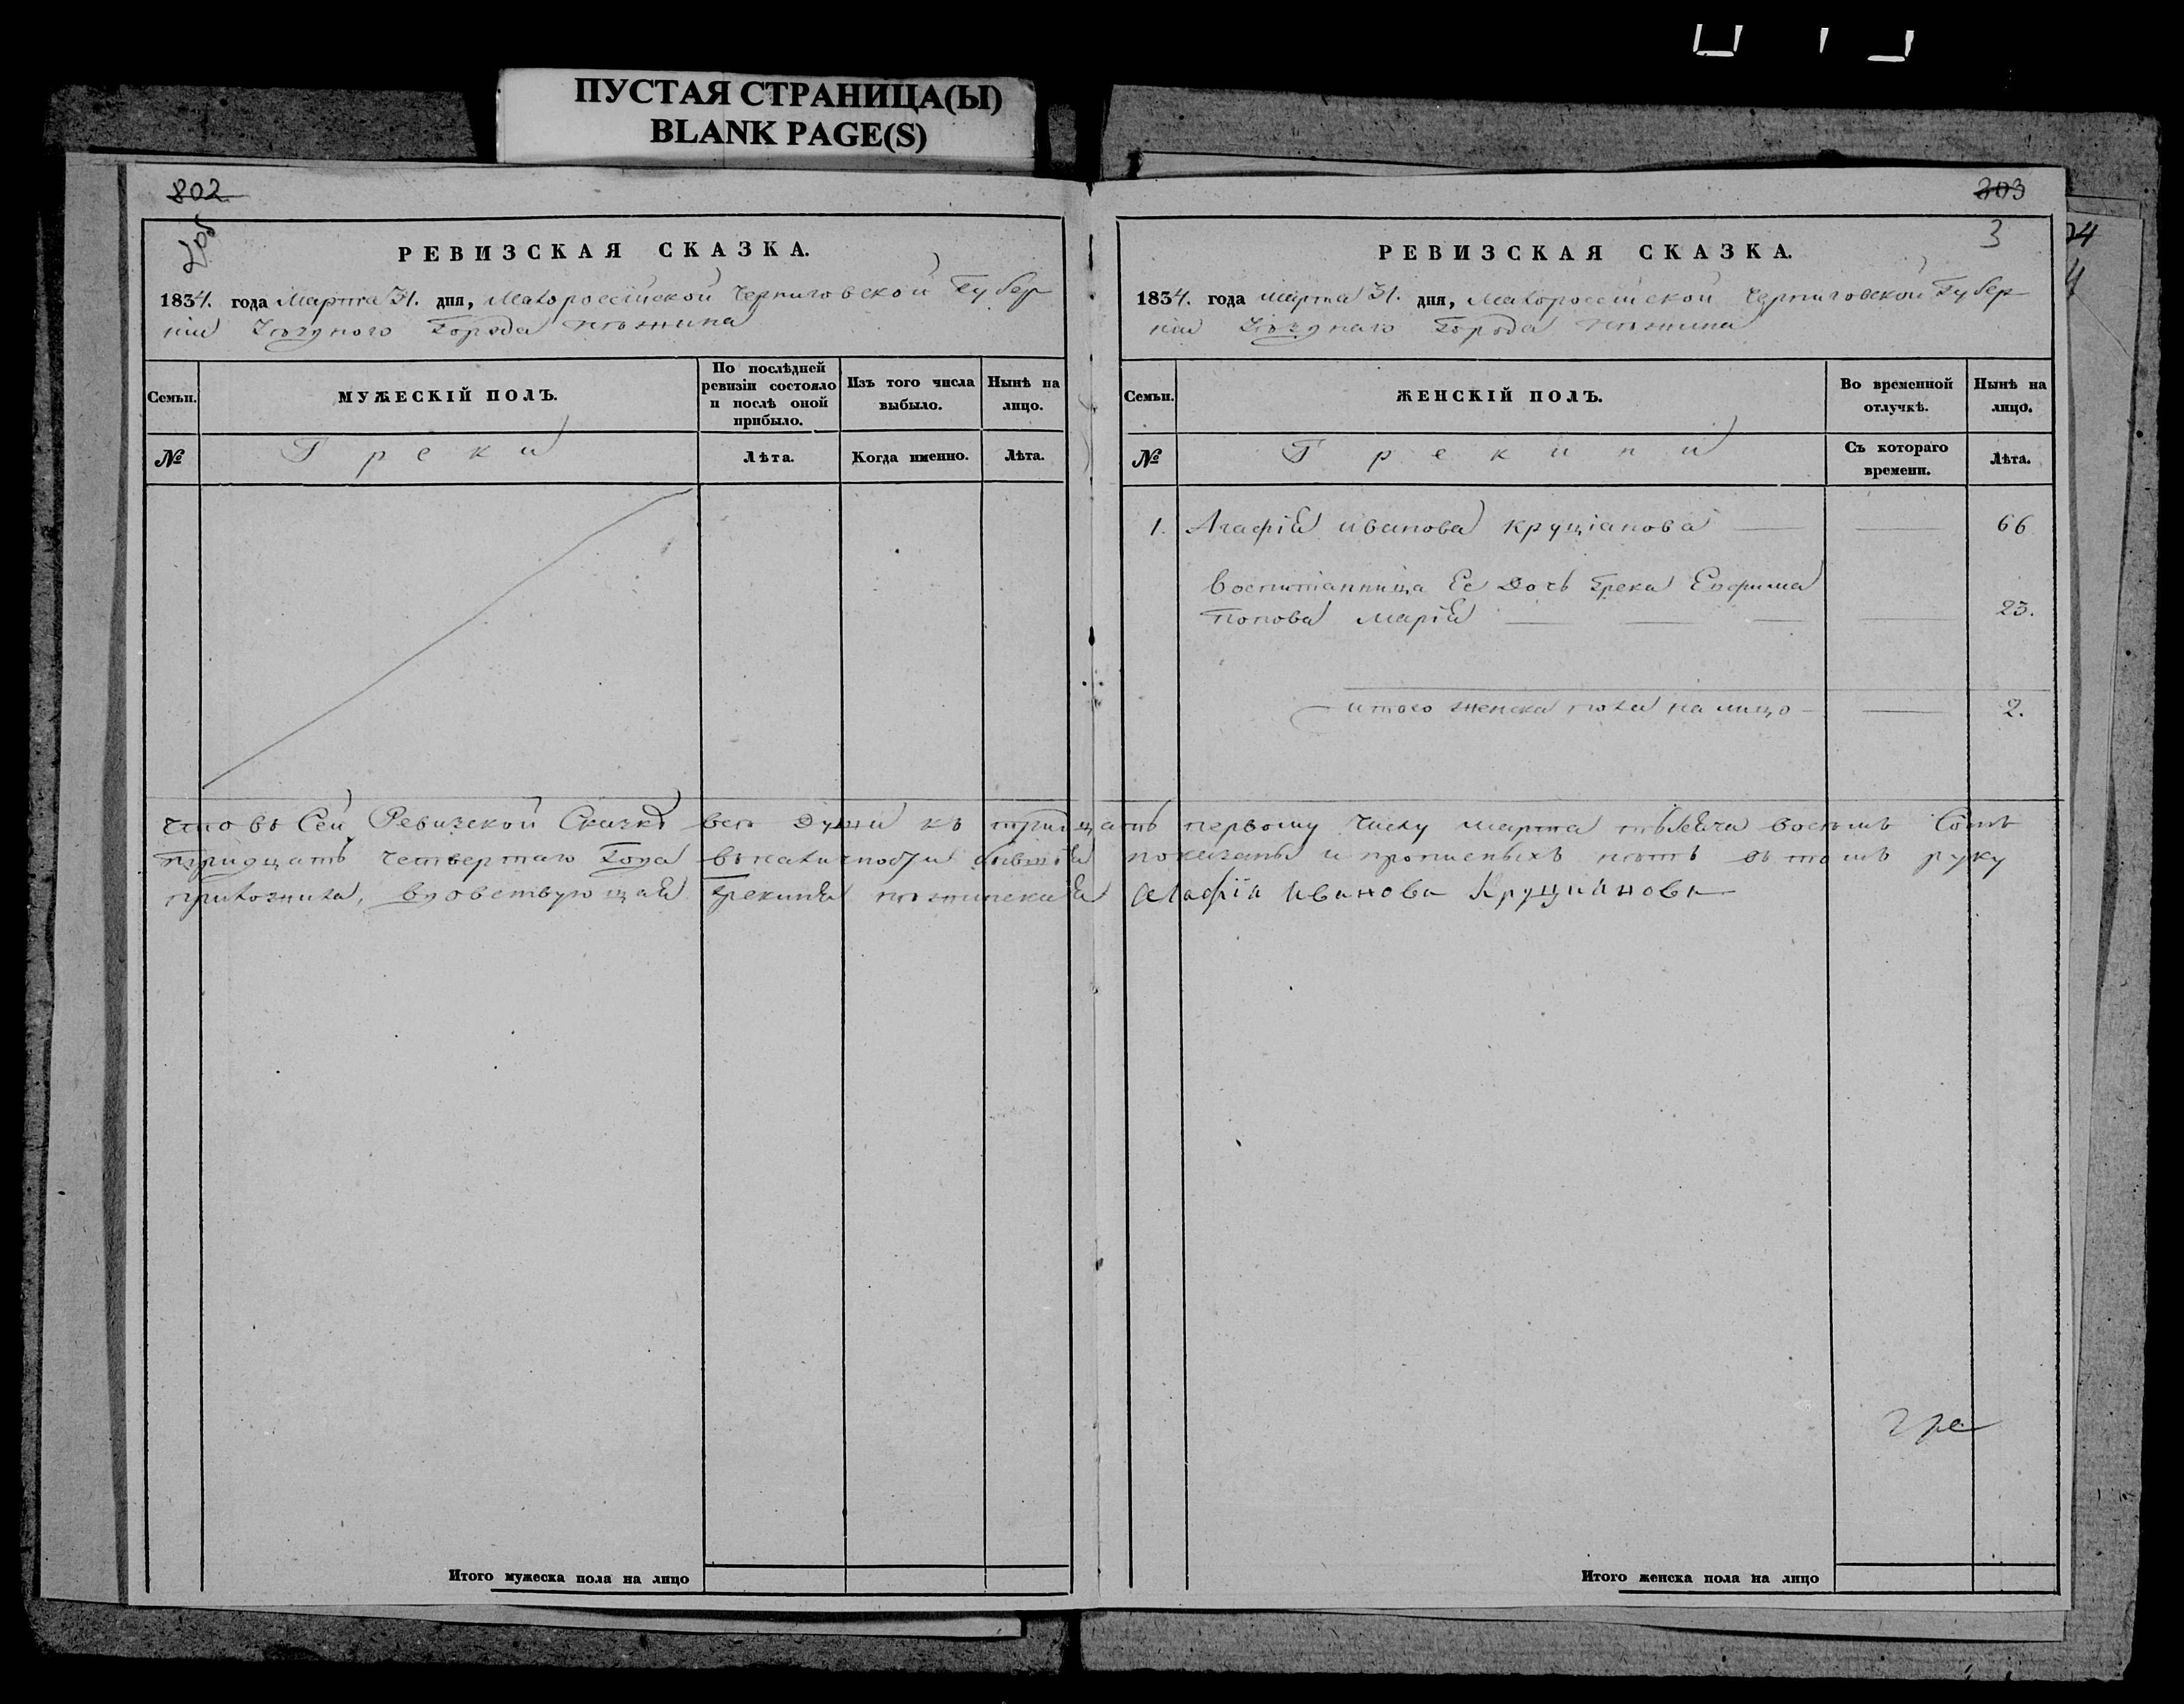 ПУСТАЯ СТРАНИЦА(Ы)
BLANK PAGE(S)
802
РЕВИЗСКАЯ СКАЗКА.
1834. года Марта 31. дня, Малороссійской Черниговской Губер
ніи Уѣзднаго Города Нѣжина
Семьи.
МУЖЕСКІЙ ПОЛЪ.
По послѣдней ревизіи состояло и послѣ оной прибыло.
Изъ того числа выбыло.
Нынѣ на лицо.
№
Греки
Лѣта.
Когда именно.
Лѣта.
Итого мужеска пола на лицо
303
3
РЕВИЗСКАЯ СКАЗКА.
1834. года Марта 31. дня, Малороссійской Черниговской Губер
ніи Уѣзднаго Города Нѣжина
Семьи.
ЖЕНСКІЙ ПОЛЪ.
Во временной отлучкѣ.
Нынѣ на лицо.
№
Грекини
Съ котораго времени.
Лѣта.
1. Агафія Иванова Круціанова 66
Воспитанница Ее Дочь Грека Евфима
Попова Марія 23.
Итого женска пола на лицо 2.
Что въ Сей Ревизской Сказкѣ все Души къ тридцать первому Числу Марта тысяча восемь Сотъ
тридцать Четвертаго Года въ наличности бывшія показаны и прописныхъ нѣтъ въ томъ руку
приложила, вдовствующая Грекиня нѣжинская Агафія Иванова Круциянова
Итого женска пола на лицо